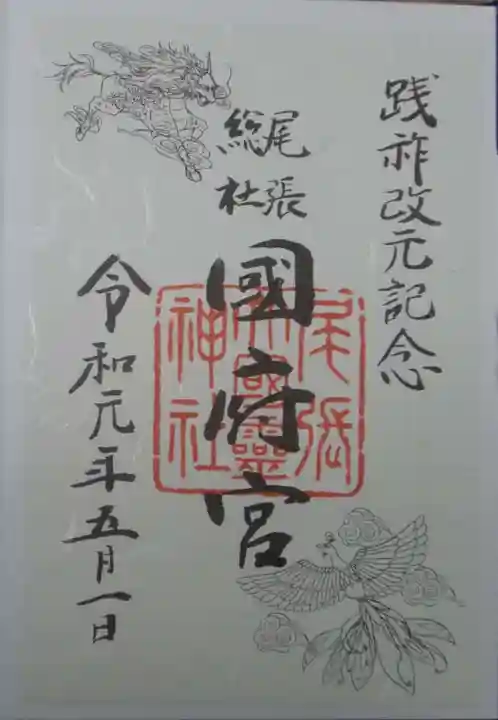 践祚改元記念
尾張
総社
國府宮
尾張
大國靈
神社
令和元年五月一日